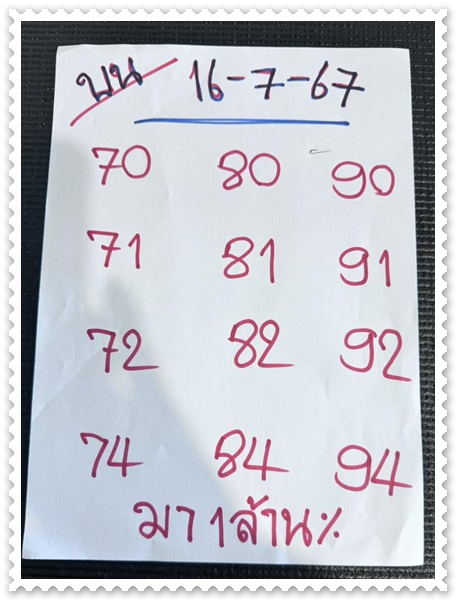 บน 16-7-67
70 80 90
71 81 91
72 82 92
74 84 94
มา 1ล้าน%